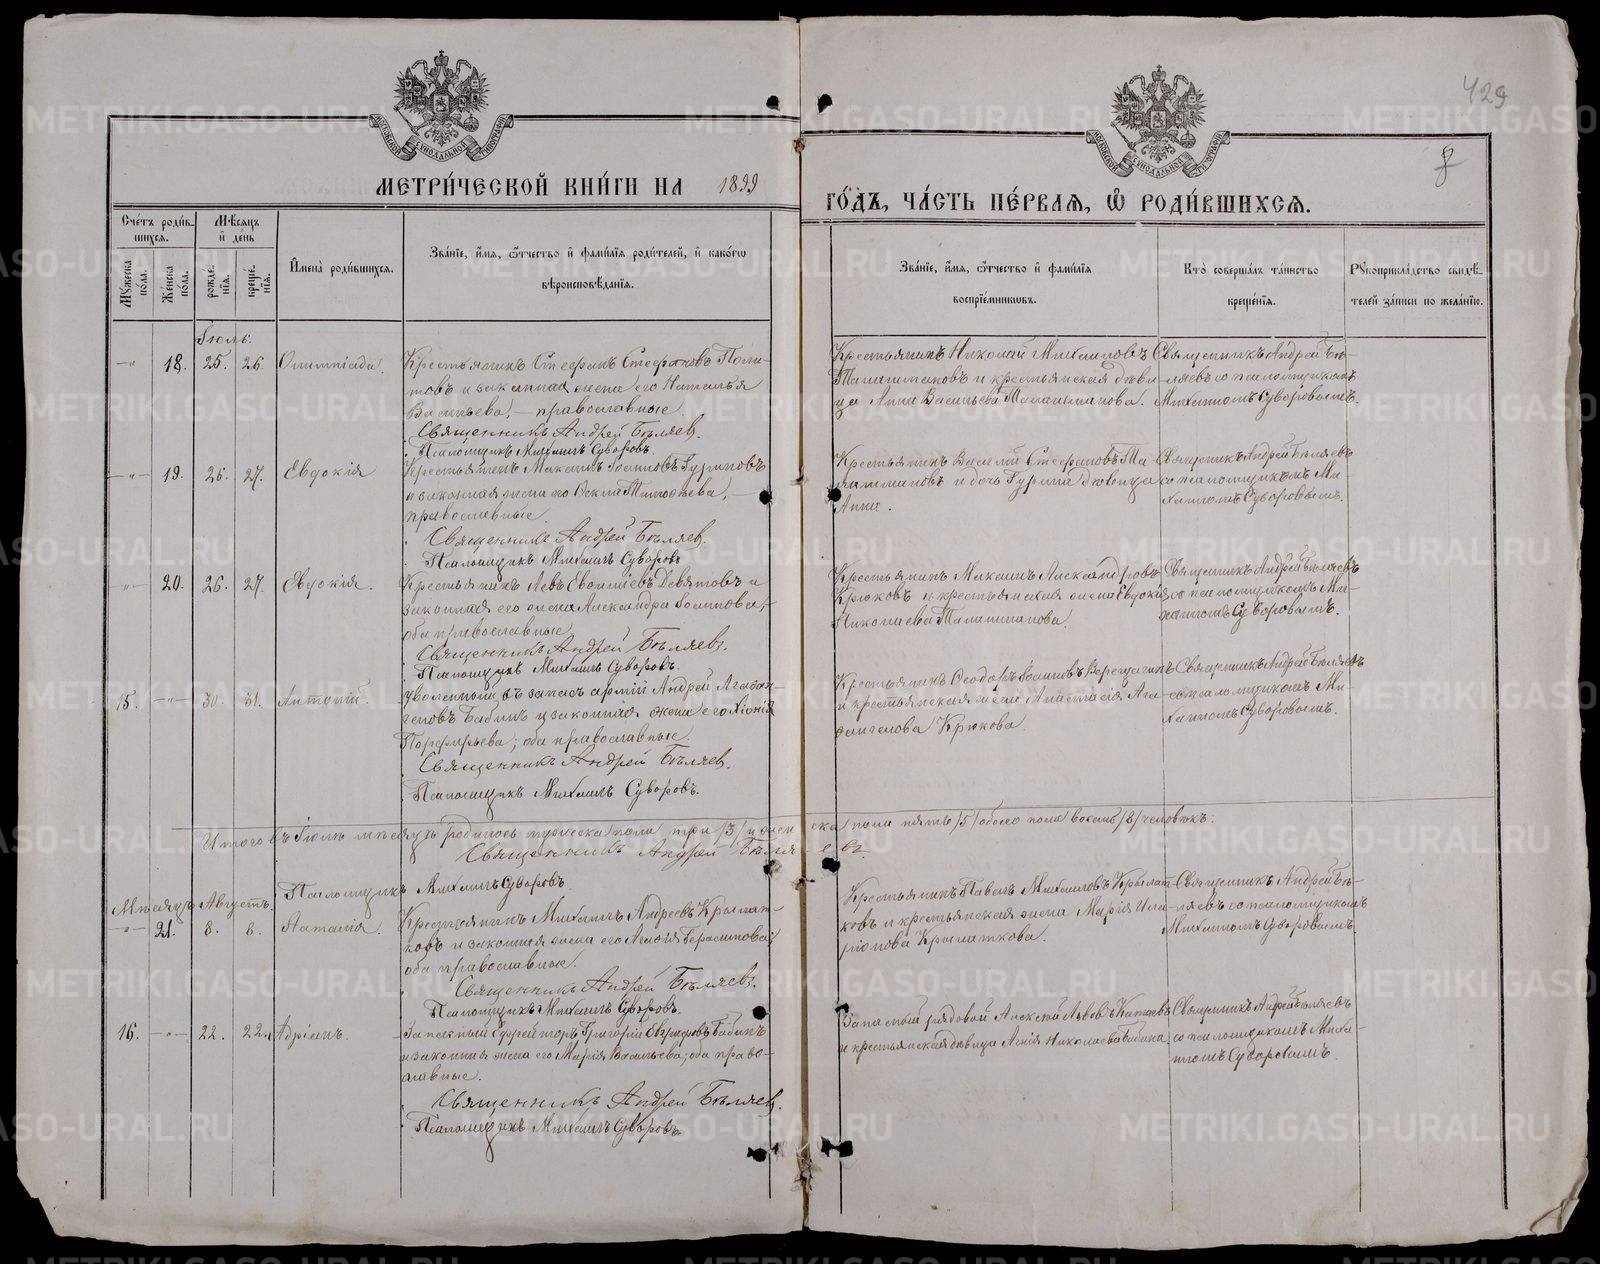 429
МЕТРИ́ЧЕСКОЙ КНИ́ГИ НА 1899
ГО́ДЪ, ЧА́СТЬ ПЕ́РВАЯ, Ѽ РОДИ́ВШИХСЯ.
МОСКОВСКОЙ СѴНОДАЛЬНОЙ ТИПОГРАФІИ
МОСКОВСКОЙ СѴНОДАЛЬНОЙ ТИПОГРАФІИ
Сче́тъ роди́в-
шихся.
Му́жеска по́ла.
Же́нска по́ла.
Мѣ́сяцъ
и҆ де́нь
рожде́нїя.
креще́нїя.
И҆мена̀ роди́вшихся.
Зва́нїе, и҆́мя, ѻ҆́тчество и҆ фами́лїя роди́телей, и҆ како́гѡ
вѣроисповѣ́данїя.
Зва́нїе, и҆́мя, ѻ҆́тчество и҆ фами́лїя
воспрїе́мниковъ.
Кто̀ соверша́лъ та́инство
креще́нїя.
Рꙋкоприкла́дство свидѣ́-
телей за́писи по жела́нїю.
Іюль.
-"- 18. 25. 26. Олимпіада.
Крестьянинъ Стефанъ Стефановъ
и законная жена его Наталья
Васильева, - православные.
Священникъ Андрей Бѣляев.
Псаломщикъ Михаилъ Суворовъ.
Крестьянинъ Николай Михаиловъ
Талашмановъ и крестьянская дѣви-
ца Анна Васильева Талашманова.
Священникъ Андрей Бѣ-
ляевъ со псаломщикомъ
Михаиломъ Суворовымъ.
-"- 19. 26. 27. Евдокія
Крестьянинъ Максимъ
и законная жена его Ѳекла Тимоѳеева, -
православные.
Священникъ Андрей Бѣляев.
Псаломщикъ Михаилъ Суворовъ
Крестьянинъ Василій Стефановъ Та-
лашмановъ и дочь Гурина дѣвица
Анна.
Священникъ Андрей Бѣляевъ
со псаломщикомъ Ми-
хаиломъ Суворовымъ.
-"- 20. 26. 27. Евдокія.
Крестьянинъ Левъ Девятовъ и
законная его жена Александра
оба православные
Священникъ Андрей Бѣляев.
Псаломщикъ Михаилъ Суворовъ.
Крестьянинъ Максимъ Александровъ
Крюковъ и крестьянская жена Евдокія
Николаева Талашманова.
Священникъ Андрей Бѣляевъ
со псаломщикомъ Ми-
хаиломъ Суворовымъ.
15. -"- 30. 31. Антоній.
Уволенный въ запасъ арміи Андрей Агафан-
геловъ Бабинъ и законная жена его Хіонія
Порфирьева; оба православные.
Священникъ Андрей Бѣляев.
Псаломщикъ Михаилъ Суворовъ.
Крестьянинъ Ѳеодоръ Верещагинъ
и крестьянская жена Анастасія Ага-
фангелова Крюкова.
Священникъ Андрей Бѣляевъ
со псаломщикомъ Ми-
хаиломъ Суворовымъ.
Итого въ Іюлѣ мѣсяцѣ родилось мужеска пола три /3/ и женска пола пять /5/ обоего пола восемь /8/ человѣкъ.
Священникъ Андрей Бѣляевъ.
Псаломщикъ Михаилъ Суворовъ.
Мѣсяцъ Августъ.
-"- 21. 8. 8. Наталія.
Крестьянинъ Михаилъ Андреевъ Крылат-
ковъ и законная жена его Герасимова
оба православные.
Священникъ Андрей Бѣляев.
Псаломщикъ Михаилъ Суворовъ.
Крестьянинъ Павелъ Михаиловъ Крылат-
ковъ и крестьянская жена Марія Ила-
ріонова Крылаткова.
Священникъ Андрей Бѣ-
ляевъ со псаломщикомъ
Михаиломъ Суворовымъ
16. -"- 22. 22. Адріанъ.
Запасный Ефрейторъ Григорій Бабинъ
и законная жена его Марія Васильева; оба право-
славные.
Священникъ Андрей Бѣляев.
Псаломщикъ Михаилъ Суворовъ.
Запасный рядовой Алексѣй Львовъ
и крестьянская дѣвица Николаева Бабина
Священникъ Андрей Бѣляевъ
со псаломщикомъ Миха-
иломъ Суворовымъ.
METRIKI.GASO-URAL.RU